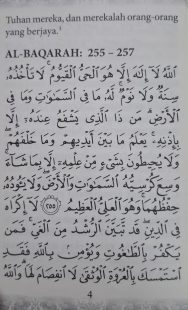 Tuhan mereka, dan merekalah orang-orang
yang berjaya.¹
AL-BAQARAH: 255 – 257
اللَّهُ لَا إِلَٰهَ إِلَّا هُوَ الْحَيُّ الْقَيُّومُ ۚ لَا تَأْخُذُهُ
سِنَةٌ وَلَا نَوْمٌ ۚ لَهُ مَا فِي السَّمَاوَاتِ وَمَا فِي
الْأَرْضِ ۗ مَن ذَا الَّذِي يَشْفَعُ عِندَهُ إِلَّا
بِإِذْنِهِ ۚ يَعْلَمُ مَا بَيْنَ أَيْدِيهِمْ وَمَا خَلْفَهُمْ ۖ
وَلَا يُحِيطُونَ بِشَيْءٍ مِّنْ عِلْمِهِ إِلَّا بِمَا شَاءَ ۚ
وَسِعَ كُرْسِيُّهُ السَّمَاوَاتِ وَالْأَرْضَ ۖ وَلَا يَئُودُهُ
حِفْظُهُمَا ۚ وَهُوَ الْعَلِيُّ الْعَظِيمُ ﴿٢٥٥﴾ لَا إِكْرَاهَ
فِي الدِّينِ ۖ قَد تَّبَيَّنَ الرُّشْدُ مِنَ الْغَيِّ ۚ فَمَن
يَكْفُرْ بِالطَّاغُوتِ وَيُؤْمِن بِاللَّهِ فَقَدِ
اسْتَمْسَكَ بِالْعُرْوَةِ الْوُثْقَىٰ لَا انفِصَامَ لَهَا ۗ وَاللَّهُ
4